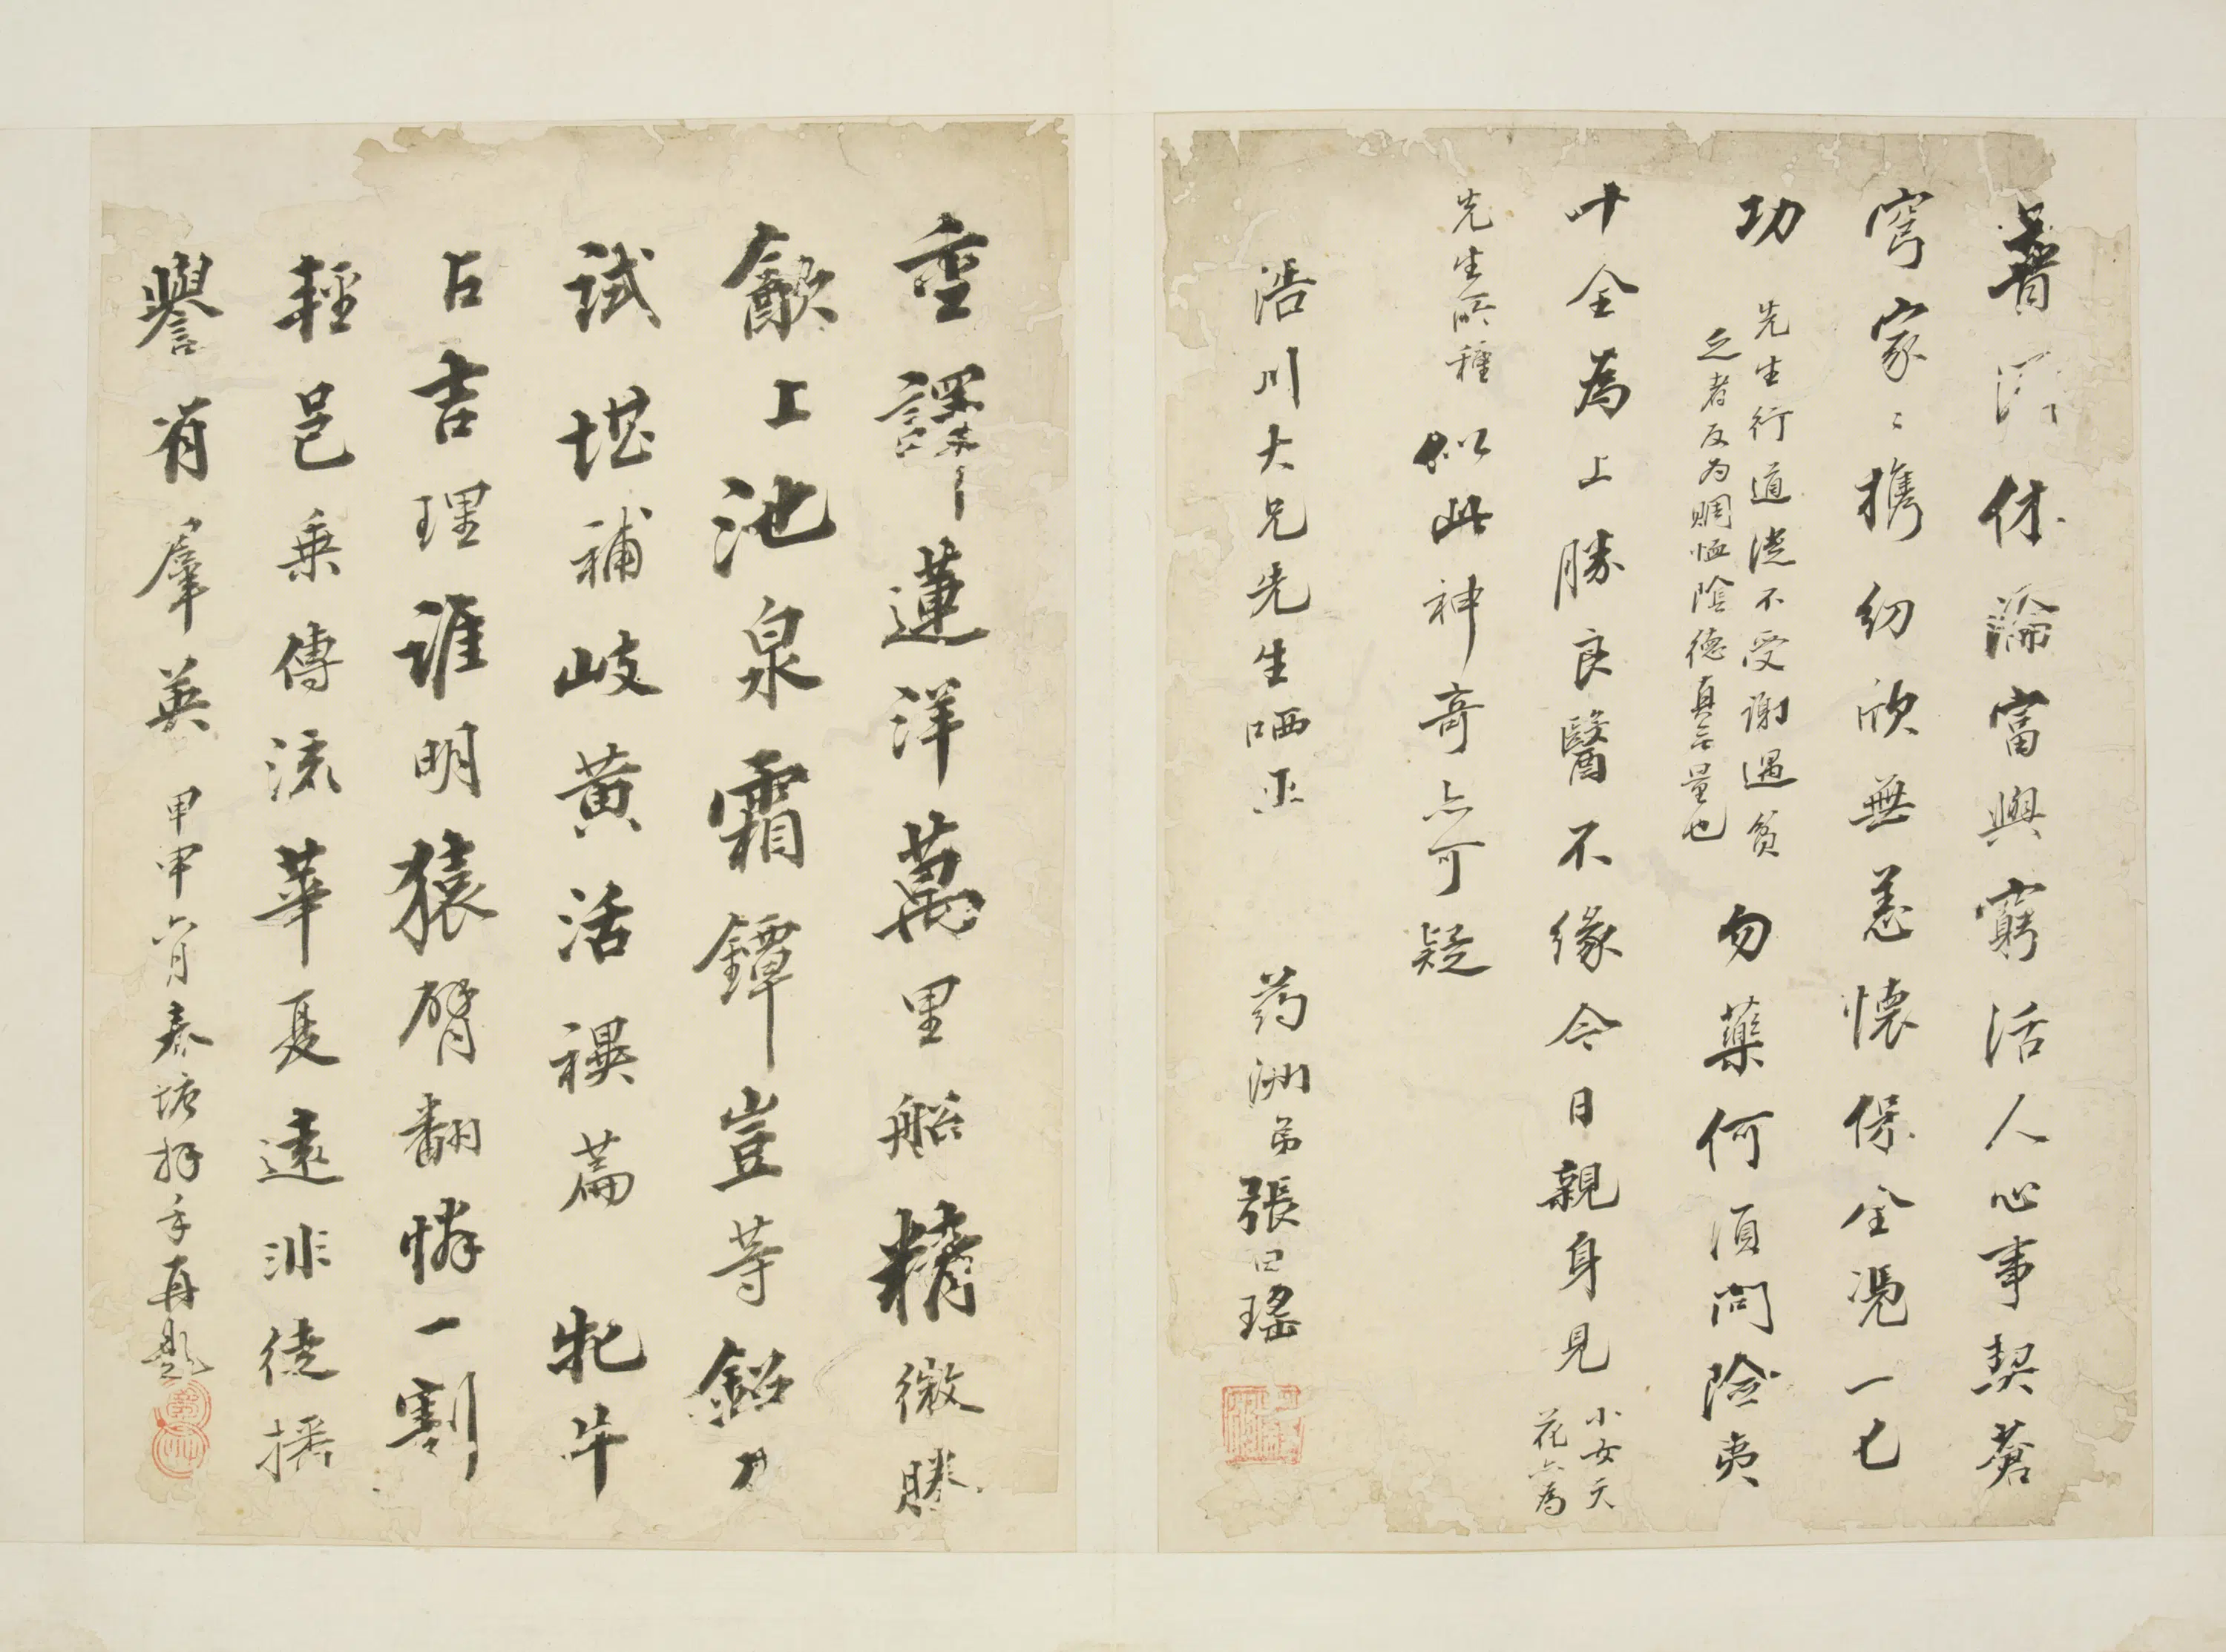 普濟休論富與窮活人心事契蒼
穹家〻攜幼欣無恙懷保全憑一匕
功
先生行道從不受謝遇貧
乏者反为賙恤陰德真無量也
勿藥何須問險夷
十全為上勝良醫不緣今日親身見
小女天
花亦為
先生所種
似此神奇亦可疑
浩川大兄先生哂正 药洲弟張曰瑤
重譯蓮洋萬里船精微勝
㱃上池泉霜鐔豈等鉛刀
試堪補岐黃活禩篇 牝牛
占吉理誰明猿臂翻憐一割
輕邑乘傳流華夏遠非徒播
譽有羣英 甲申六月春塘拜手再題